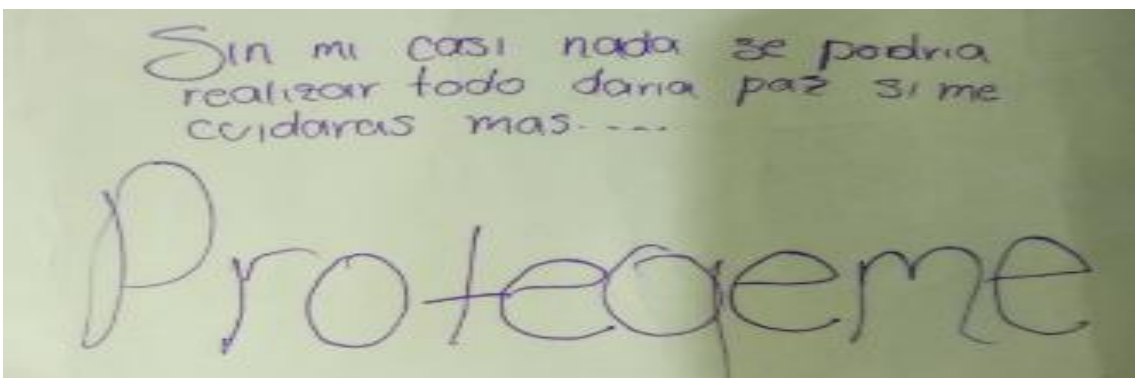 Sin mi casi nada se podria
realizar todo daria paz si me
cuidaras mas.....
Protegeme